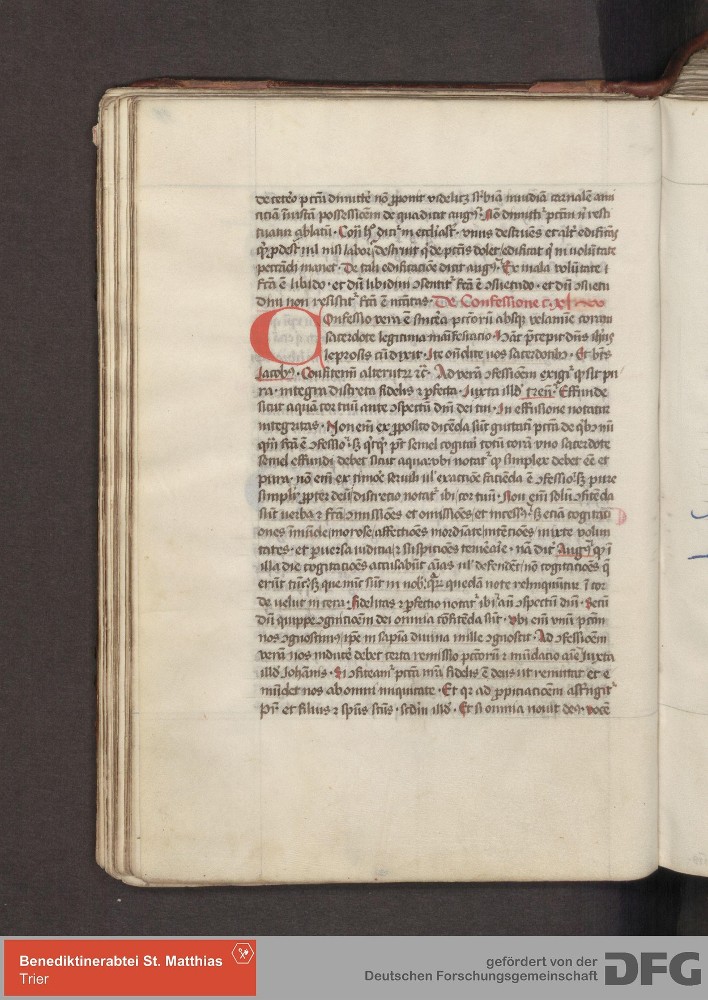 de cetero pctm dimitte no pponit videlicz sbiam inuidiam carnalem ami
citiam iniustam possessioem de qua dicit augꝰ. Non dimitti pctm n resti
tuatur ablatu. Con hͦ dicit in ecclastͨ. vnus destruens et alt edificas
qd pdest nil nisi labor destruit qͥ de pctis dolet edificat qͥ in volutate
peccadi manet. De tali edificacioe dicit augꝰ. Ex mala volutate
fca e libido. et du libidini ɔsentit fca e ɔsuetudo. et du ɔsuetu
dini non resistit fca e ncitas. De Confessione c. xl
Confessio vera e sincera pctoru absqꝫ velamine coram
sacerdote legitima manifestacio. hac pcepit dns
leprosis cu dixit. Ite ondite vos sacerdotibꝰ. Et bts
Jacobꝰ. Confitemi alterutrꝫ ꝛc. Ad vera ɔfessioem exigit qꝫ sit pu
ra. integra discreta fidelis ꝛ pfecta. Juxta illd tren. Effunde
sicut aqua cor tuu ante ɔspectu dni dei tui. In effusione notatur
integritas. Non em ex pposito dicenda sunt pctm de qͥbꝰ
fca e ɔfessio. sꝫ pt semel cogitari totu cora vno sacerdote
semel effundi debet sicut aqua. vbi notat qꝫ simplex debet ee et
pura. no em ex timore seruili ul exactioe facieda e ɔfessio. sꝫ pure
simplr ppter deu discretio notat ibi cor tuu. Non em solu ɔfiteda
sut verba ꝛ fca ɔmissioes et omissioes et sꝫ ecia cogitaci
ones inudie morose affectioes mordiate intecioes volun
tates. et puersa iudicia ꝛ suspicioes temerarie. na dicit Augꝰ qꝫ i
illa die cogitacioes accusabut aias ul defendet no cogitacioes q
erut tuc sꝫ que nuc sut in nob. qꝛ queda note relinquutur i cor
de velut in cera. fidelitas ꝛ pfectio notat ibi an ɔspectu dni. secu
du quippe ɔgnicioem dei omnia cofiteda sut. vbi em vnu pctm
nos ɔgnoscimꝰ ipe in sapia diuina mille ɔgnoscit. Ad ɔfessioem
vera nos inducere debet certa remissio pctoru ꝛ mudacio aie Juxta
illd Johanis. Si ɔfiteamr pcta nra fidelis e deus ut remittat et e
mudet nos ab omni iniquitate. Et qꝛ ad ppiciacioem astringit
pr et filius ꝛ spus scus. scdm illd. Et si omnia nouit deꝰ. vocem
Benediktinerabtei St. Matthias
Trier
gefördert von der
Deutschen Forschungsgemeinschaft
DFG